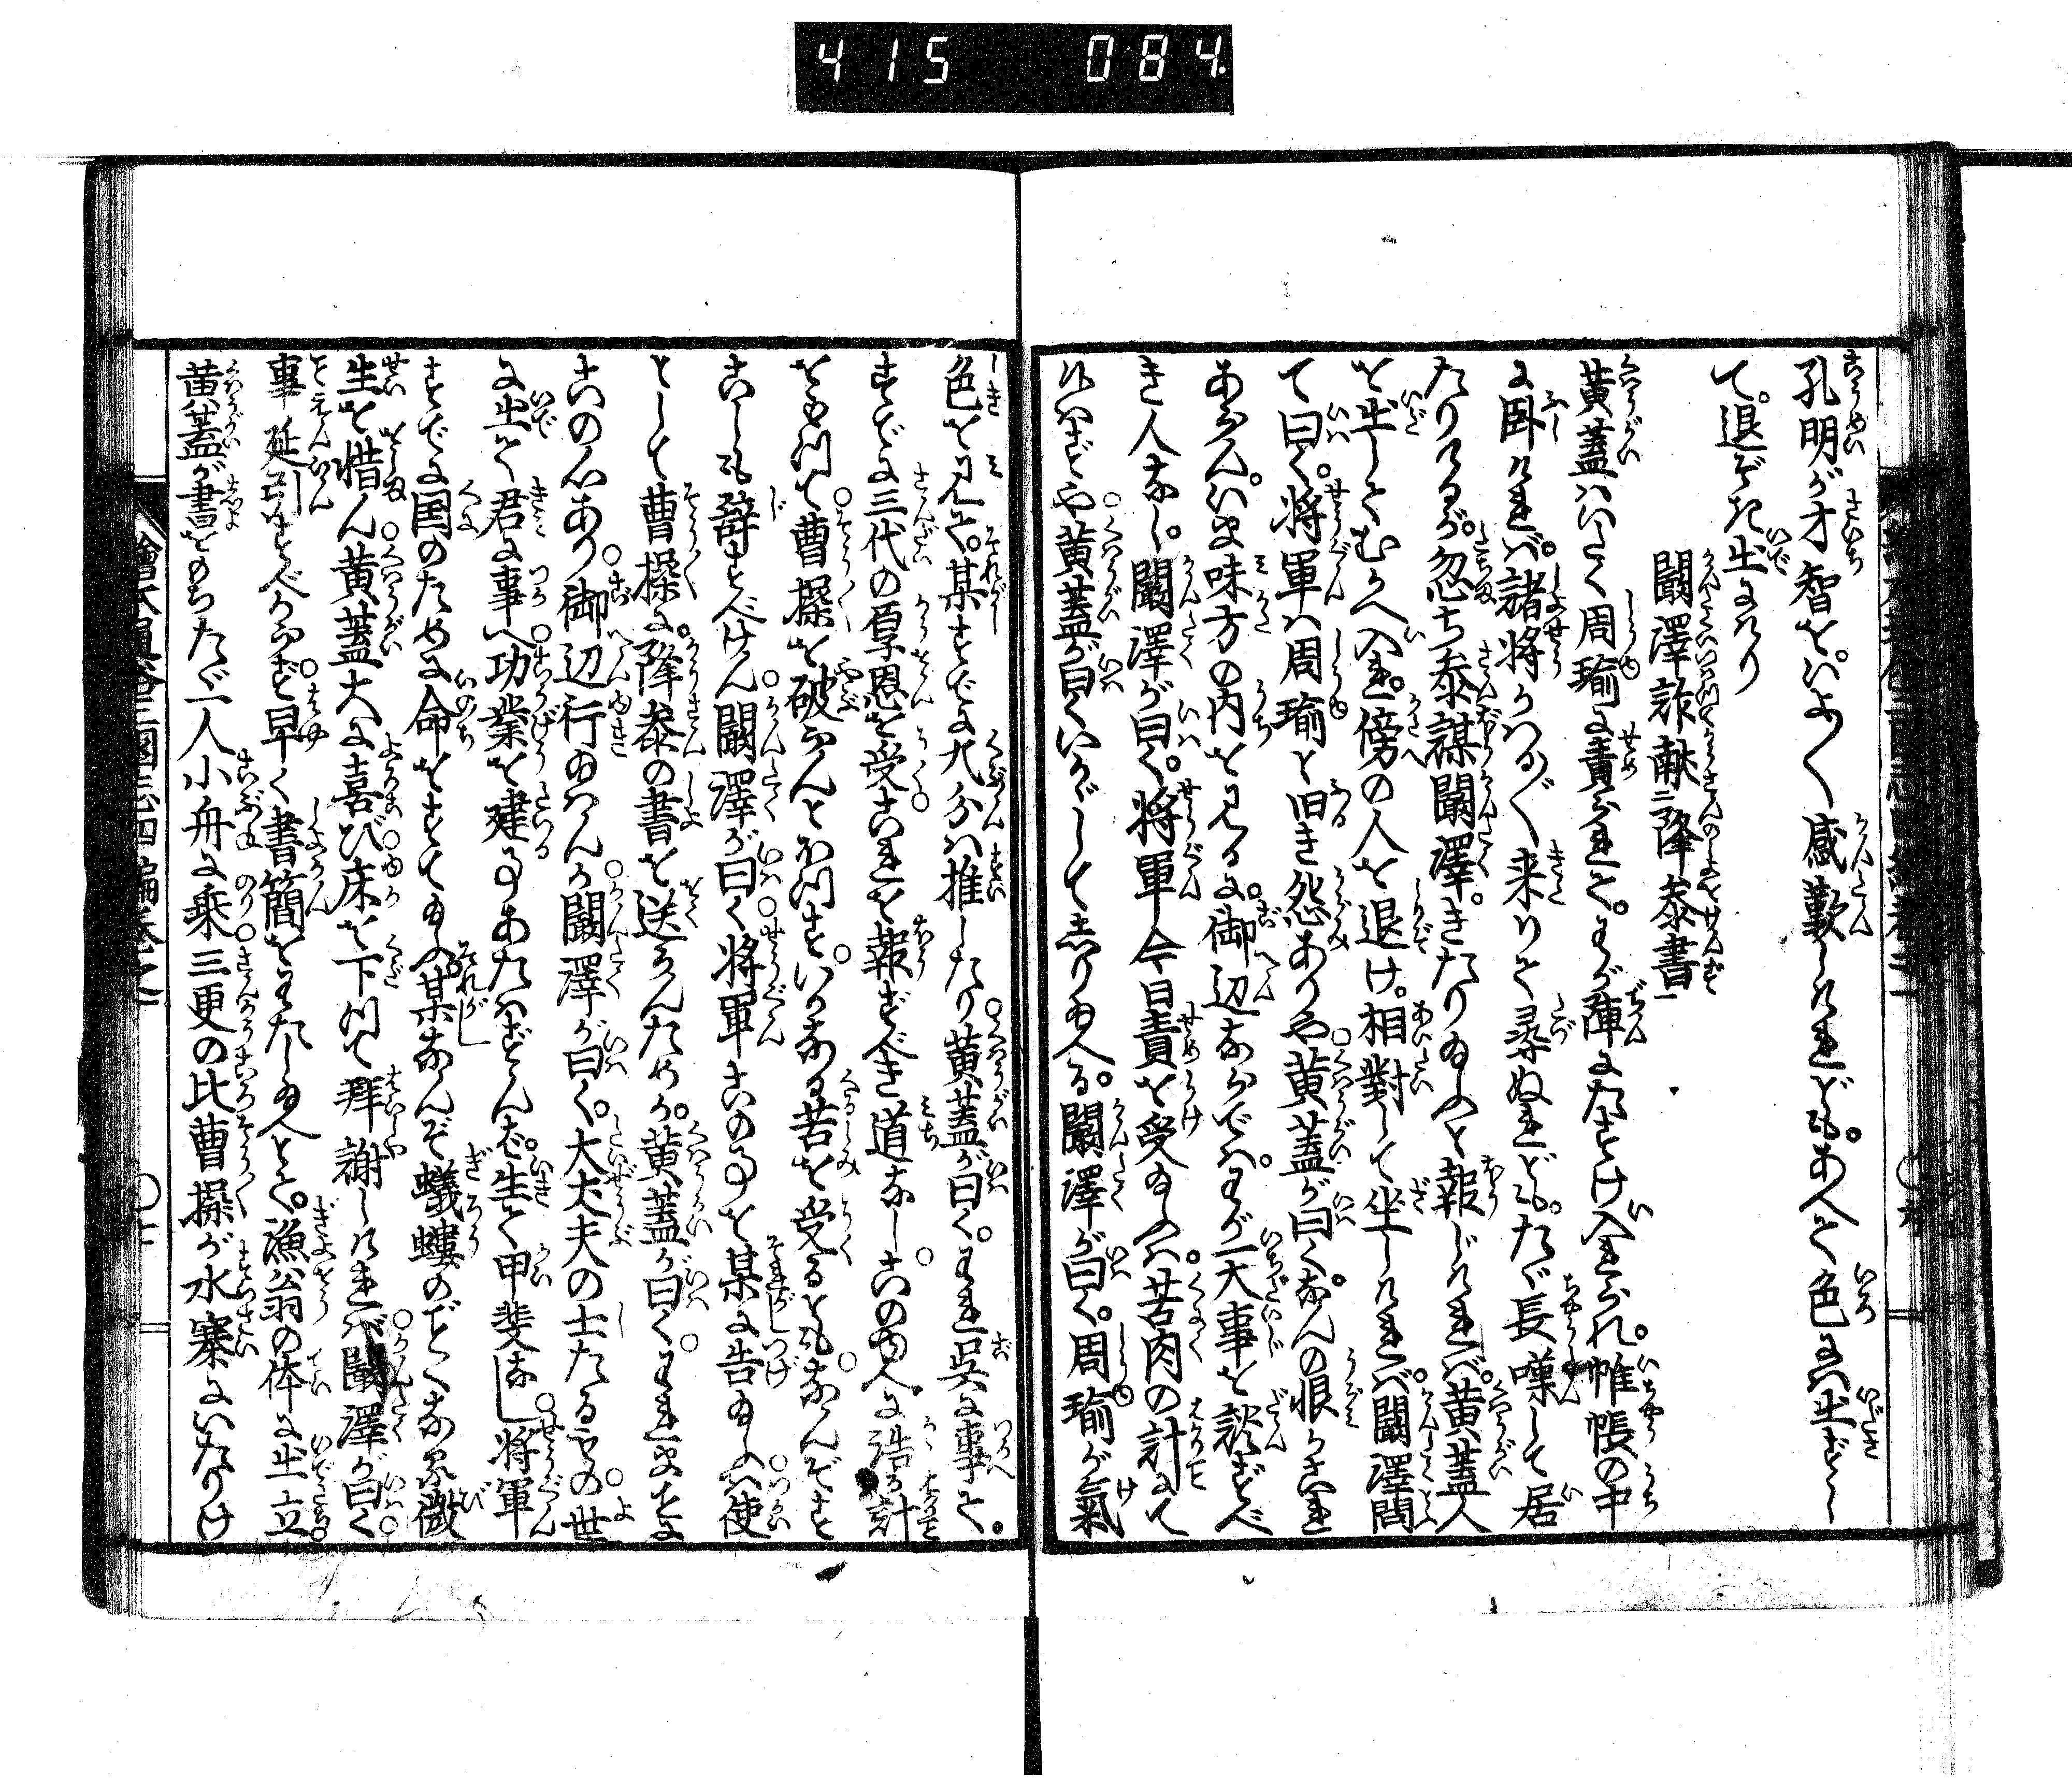 415 084
孔明が才智を。いよ〳〵感歎しけれども。あへて色には出ずし
て。退ぞき出にけり
闞澤詐献二降参書一
黄蓋はいたく周瑜に責られて。わが陣にたすけ入られ。帷帳の中
に臥ければ。諸将かはる〴〵来りて尋ぬれども。たゞ長嘆して居
たりけるが。忽ち参謀闞澤。きたり給ふと報じければ。黄蓋人
を出してむかへ入れ。傍の人を退け。相對して坐しければ。闞澤問
て曰く。将軍は周瑜と旧き怨ありや。黄蓋が曰く。なんの恨かこれ
あらん。いま味方の内を見るに。御辺ならでは。わが一大事を談ずべ
き人なし。闞澤が曰く。将軍今日責を受給ふは。苦肉の計にて
候はずや。黄蓋が曰くいかゞして志り給へる。闞澤が曰く。周瑜が氣
色を見て。某すでに九分は推したり。黄蓋が曰く。われ呉に事て。
すでに三代の厚恩を受。これを報ずべき道なし。このゆへに此計
をもつて。曹操を破らんとほつす。いかなる苦を受るとも。なんぞす
こしも辞すべけん。闞澤が曰く。将軍このことを某に告給ふは。使
として曹操に。降参の書を送らんためか。黄蓋が曰く。われまさに
この心あり。御辺行給はんか。闞澤が曰く。大丈夫の士たるもの。世
に出て君に事へ。功業を建ることあたはずんば。生て甲斐なし。将軍
すでに国のために命をすて給ふ。某なんぞ螻蟻のごとくなる微
生を惜ん。黄蓋大に喜び。床を下つて拜謝しければ。闞澤が曰く。
事延引すべからず。早く書簡をわたし給へとて。漁翁の体に出立。
黄蓋が書をもちたゞ一人小舟に乗。三更の比曹操が水寨にいたりけ